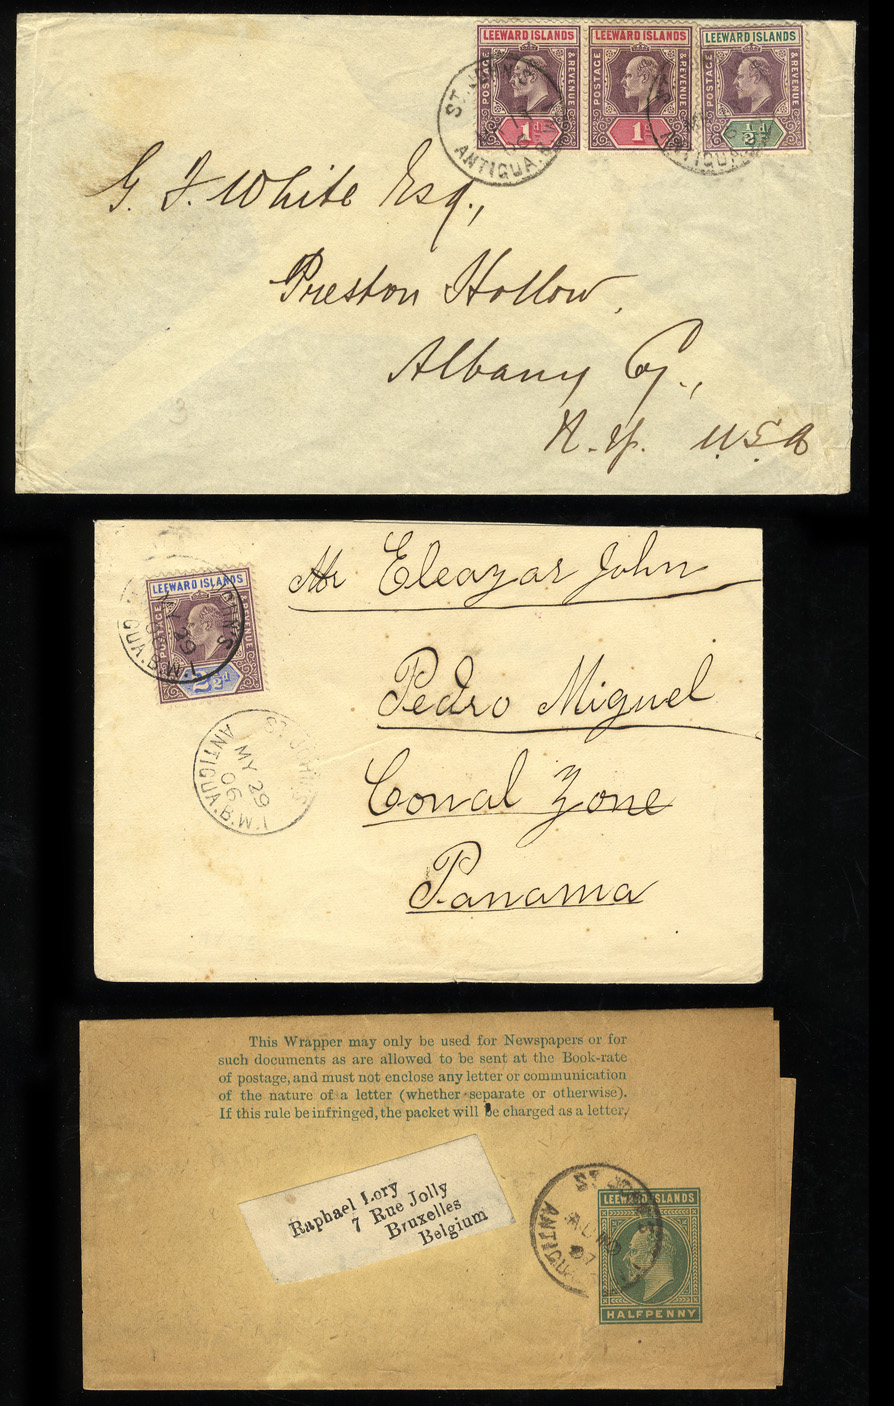 LEEWARD ISLANDS LEEWARD ISLANDS LEEWARD ISLANDS
POSTAGE & REVENUE POSTAGE & REVENUE POSTAGE & REVENUE
1d 1 ½d
ANTIGUA.B.W.
ANTIGUA
G. F. White Esq.,
Preston Hollow,
Albany Co.,
N.Y. U.S.A
3
LEEWARD ISLANDS
POSTAGE & REVENUE
2½d
ST. JOHN'S
MY 29
06
ANTIGUA.B.W.I
Mr Eleazar John
Pedro Miguel
Conal Zone
Panama
This Wrapper may only be used for Newspapers or for
such documents as are allowed to be sent at the Book-rate
of postage, and must not enclose any letter or communication
of the nature of a letter (whether separate or otherwise).
If this rule be infringed, the packet will be charged as a letter.
Raphael Lory
7 Rue Jolly
Bruxelles
Belgium
LEEWARD ISLANDS
HALFPENNY